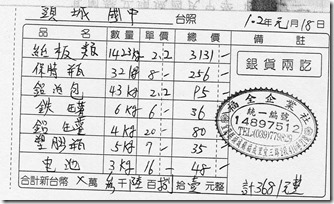 頭城國中 台照 102年元月18日
品名 數量 單價 總價 備註
紙板類 1423kg 2.2 3131 -
保特瓶 32kg 8 - 256
鋁泊包 43kg 2.2 95
鉄罐 6kg 6 - 36
鋁罐 4kg 20 - 80
塑膠瓶 5kg 7 - 35
电池 3kg 16 - 48 -
銀貨兩訖
福全企業社
統一編號
14897512
合計新台幣 萬 仟 陸 百 捌 拾 壹 元整 計3681元整